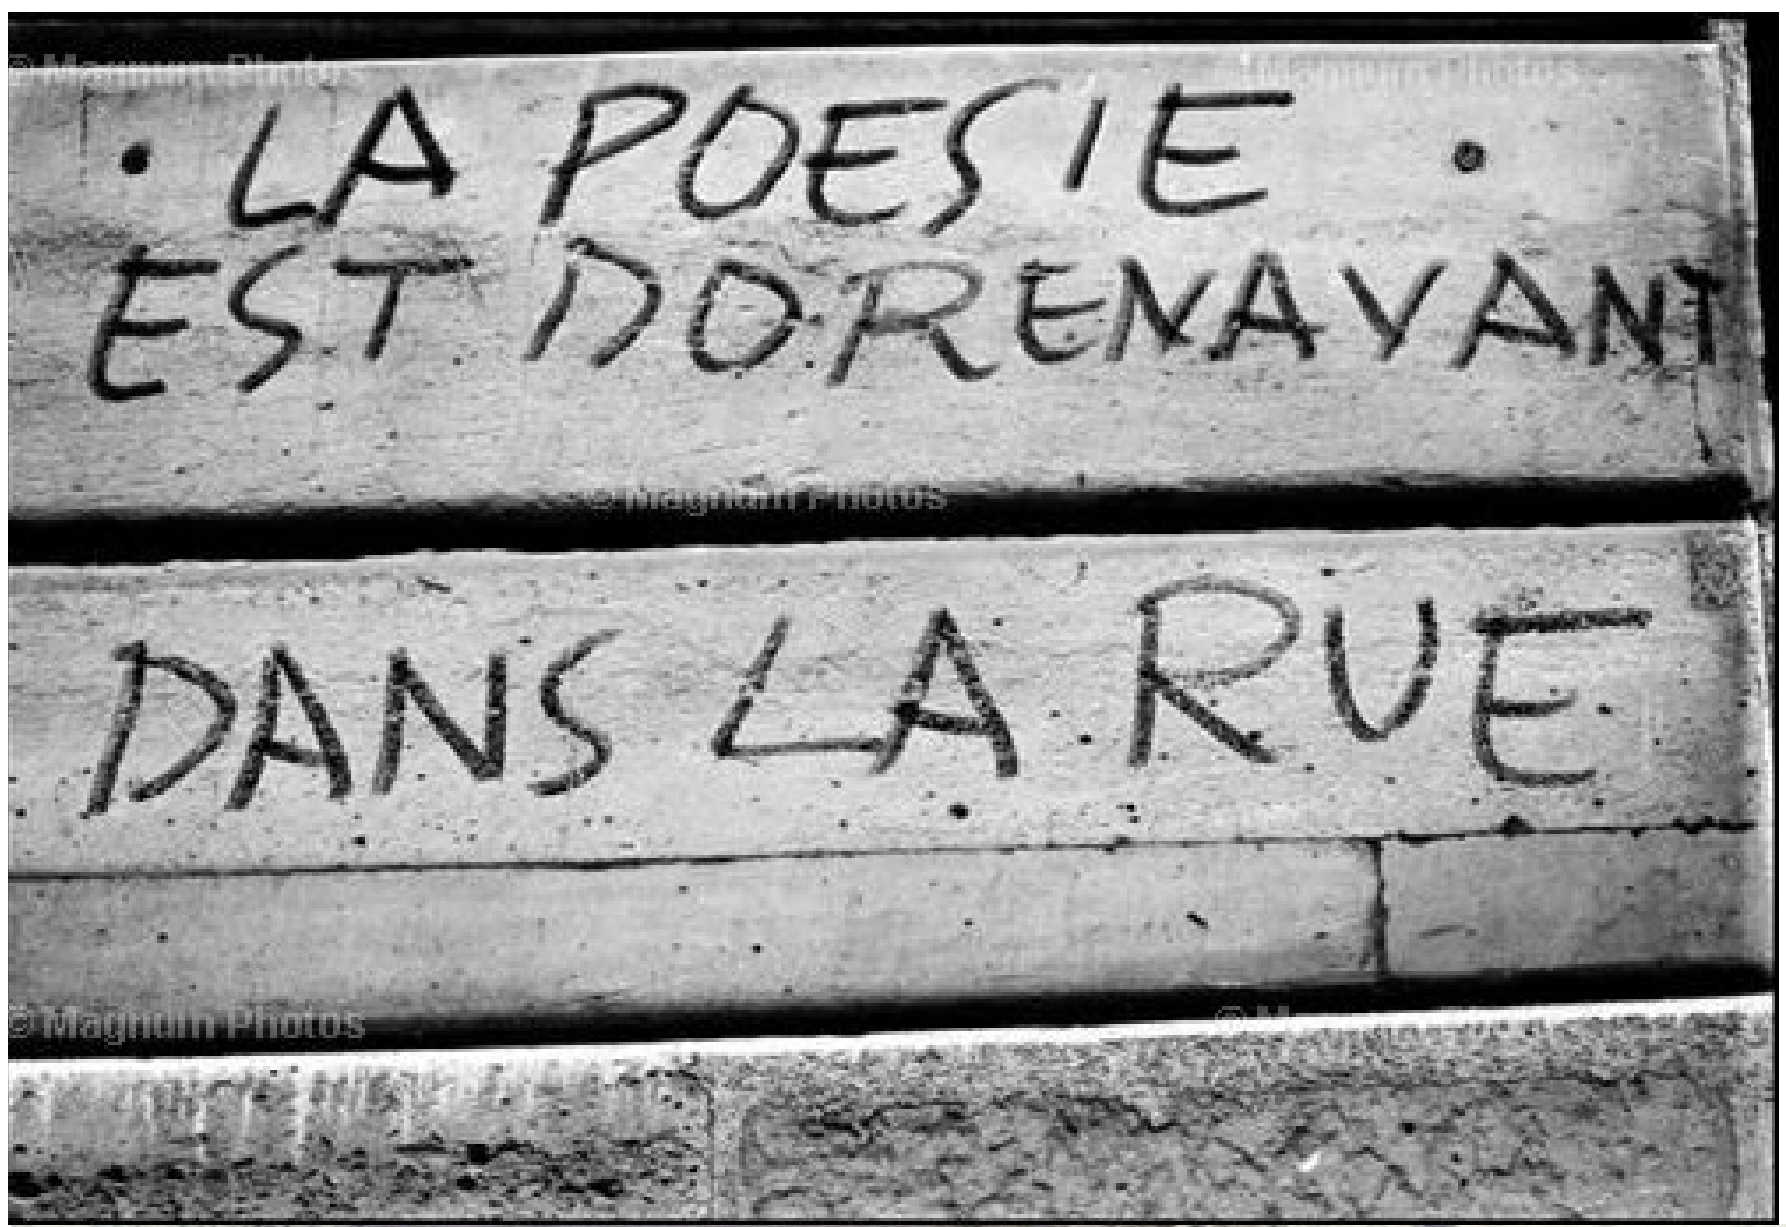 © Magnum Photos
© Magnum Photos
LA POESIE
EST DORENAVANT
© Magnum Photos
DANS LA RUE
© Magnum Photos
© Magnum Photos